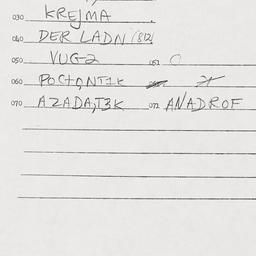 030 KREJMA
040 DER LADN (812)
050 VUG2 051
060 POCTONTIK
070 AZADA,T3K 072 ANADROF